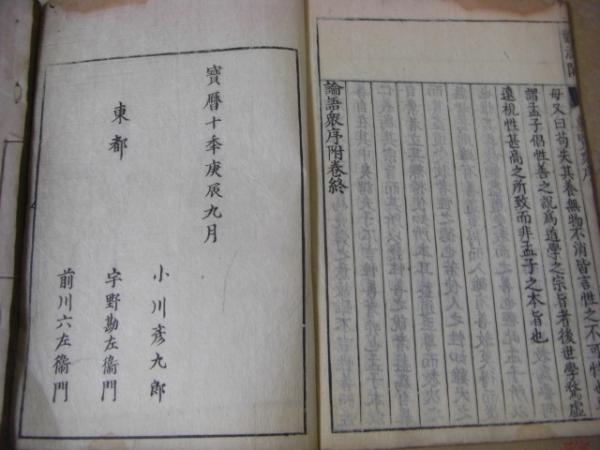 母又曰苟失其養無物不消皆言性之不可
謂孟子倡性善之說爲道學之宗旨者後世學騖虛
遠視性甚高之所致而非孟子之本旨也
論語衆序附卷終
寶曆十季庚辰九月
東都
小川彥九郎
宇野勘左衞門
前川六左衞門